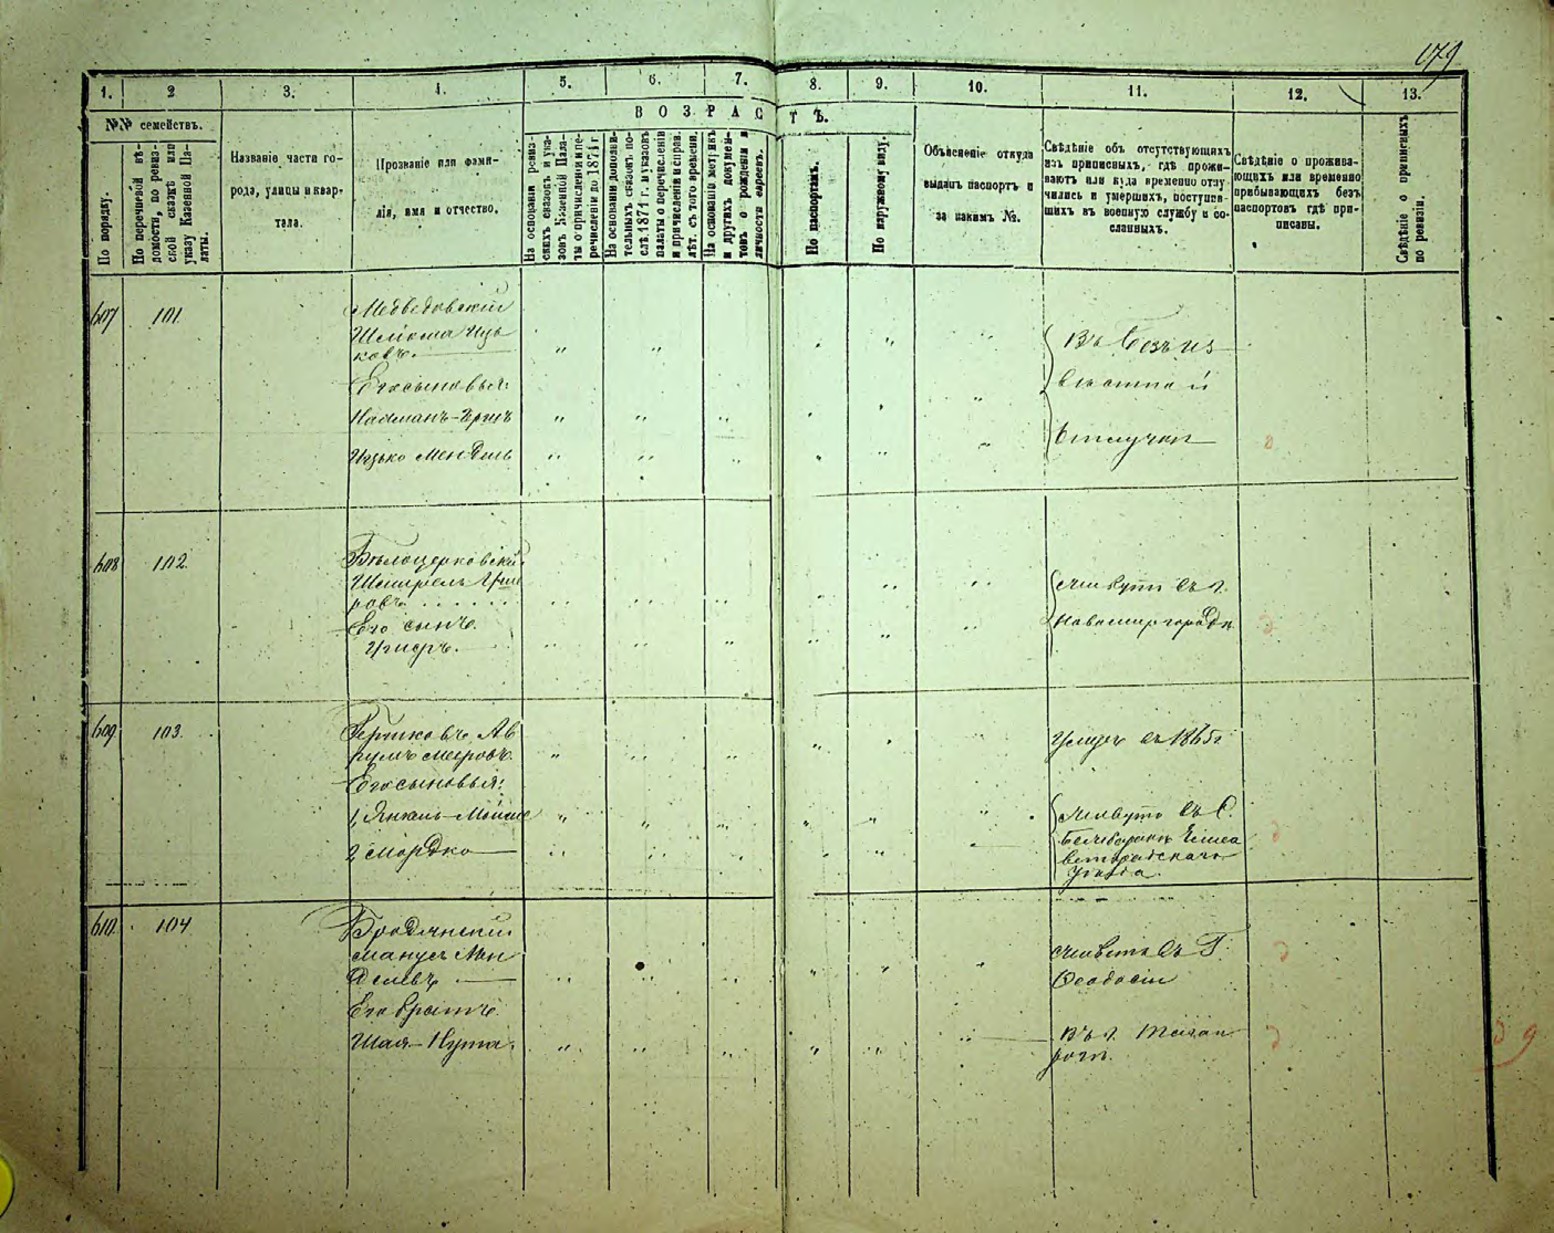 179
1. 2 3. 4. 5. 6. 7. 8. 9. 10. 11. 12. 13.
№№ семействъ.
По порядку.
По перечневой вѣ-
домости, по ревиз-
ской сказкѣ или
указу Казенной Па-
латы.
Названіе части го-
рода, улицы и квар-
тала.
Прозваніе или фами-
лія, имя и отчество.
ВОЗРАСТЪ.
На основаніи ревиз-
скихъ сказокъ и ука-
зовъ Казенной Пала-
ты о причисленіи и пе-
речисленіи до 1874 г.
На основаніи дополни-
тельныхъ сказокъ по-
слѣ 1874 г. и указовъ
палаты о перечисленіи
и причисленіи и справ.
лѣт. съ того времени.
На основаніи метрикъ
и другихъ докумен-
товъ о рожденіи и
личности евреевъ.
По паспортамъ.
По наружному виду.
Объясненіе откуда
выданъ паспортъ и
за какимъ №.
Свѣдѣніе объ отсутствующихъ
изъ приписныхъ, гдѣ прожи-
ваютъ или куда временно отлу-
чились и умершихъ, поступив-
шихъ въ военную службу и со-
сланныхъ.
Свѣдѣніе о прожива-
ющихъ или временно
прибывающихъ безъ
паспортовъ гдѣ при-
писаны.
Свѣдѣніе о приписныхъ
по ревизіи.
607 101.
Медведовскій
Шлйома Иць
ковъ.
Его сыновья:
Нахманъ-Гершъ
Ицько Мендель
Въ безъиз
вѣстной
отлучкѣ
608 102.
Бѣлоцерковскій
ровъ
Его сынъ.
живутъ въ г.
Новомиргородѣ
609 103.
Ав
румъ Мееровъ.
Его сыновья:
1, Янкель-Мошко
2 Мордко
Умеръ въ 1865 г
живутъ въ С.
Елиса
ветградскаго
уѣзда.
610. 104
Бродянскій
Манусъ Мен
делевъ
Его братъ.
Шая-Нута.
живетъ въ Г.
Феодосіи
Въ г. Таган
рогѣ.